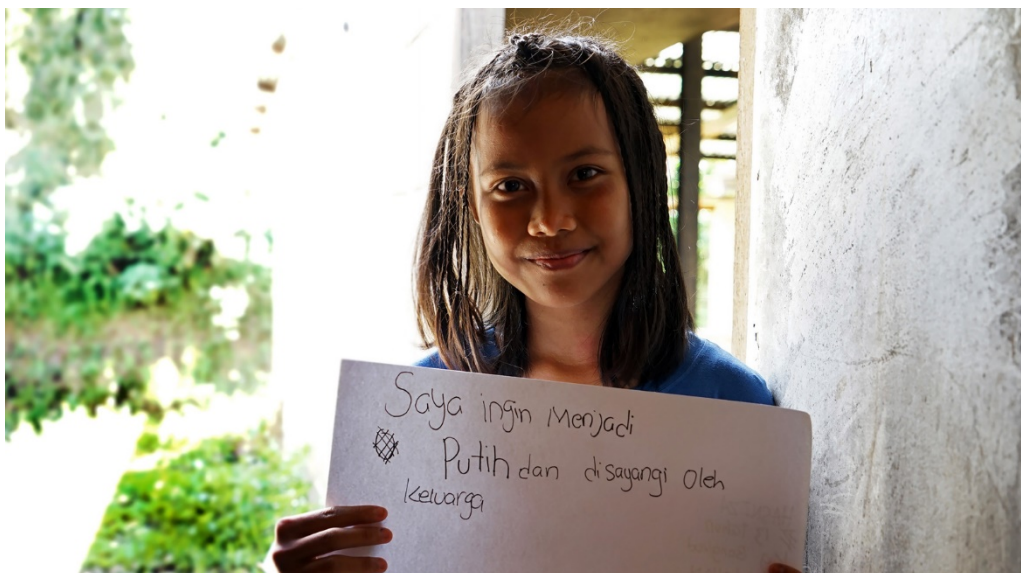 Saya ingin Menjadi
Putih dan disayangi oleh
keluarga